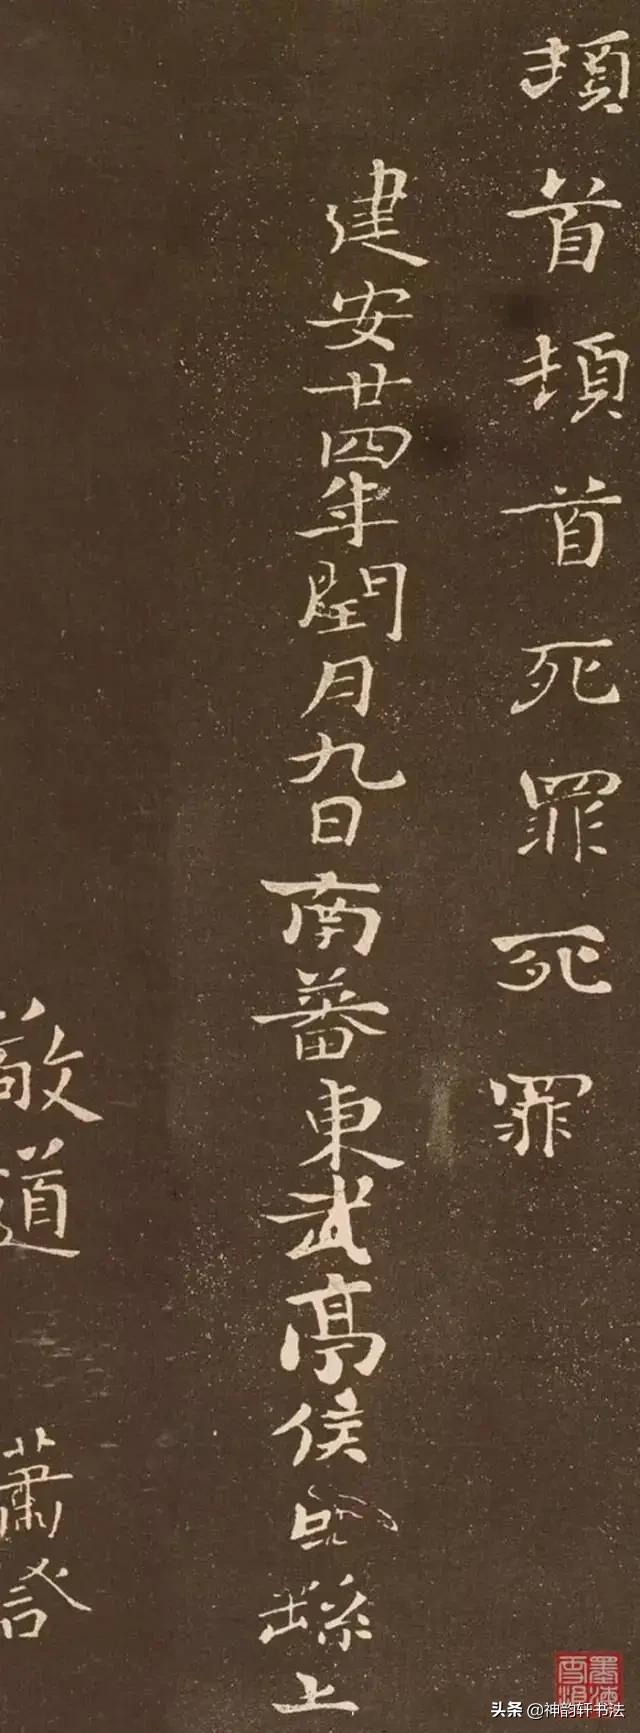 頓首頓首死罪死罪
建安廿四年閏月九日南蕃東武亭侯臣繇上
敬道
蕭詧
头条 @神韵轩书法